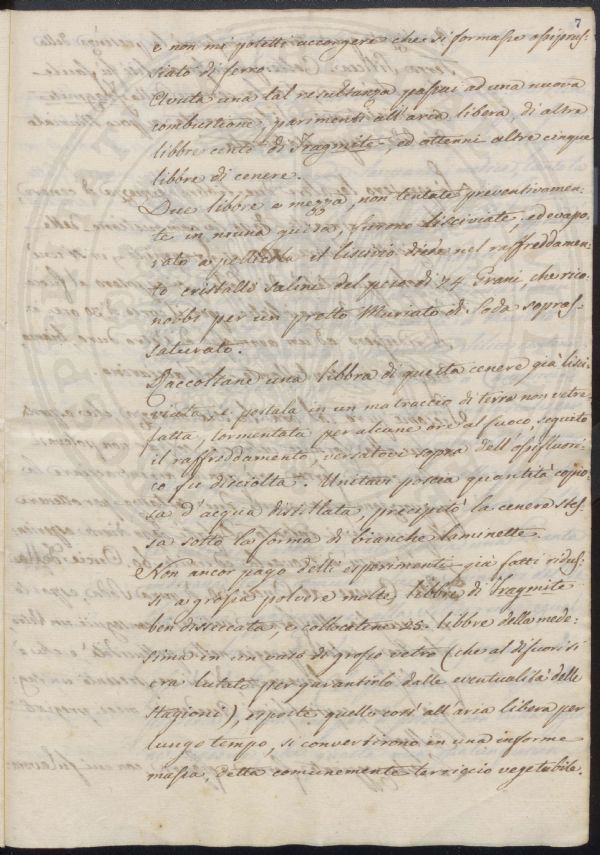 7
e non mi potetti accorgere che si formasse ossiprus-
siato di ferro.
Avuta una tal resultanza passai ad una nuova
combustione, parimenti all'aria libera, di altre
libbre cento di Fragmite, ed ottenni altre cinque
libbre di cenere.
Due libbre e mezza, non tentate preventivamen-
te in niuna guisa, furono lisciviate, ed evapo-
rato a pellicola il liscivio diede nel raffreddamen-
to cristalli salini del peso di 24 Grani, che rico-
nobbi per un pretto Muriato di Soda sopras-
saturato.
Raccoltane una libbra di questa cenere già lisci-
viata, e postala in un matraccio di terra non vetre-
fatta, tormentata per alcune ore al fuoco, seguito
il raffreddamento, versatovi sopra dell'ossifluori-
co fu disciolta. Unitavi poscia quantità copio-
sa d'acqua distillata, precipitò la cenere stes-
sa sotto la forma di bianche laminette.
Non ancor pago delli esperimenti già fatti ridus-
si a grossa polvere molte libbre di Fragmite
ben disseccata, e collocatene 25. libbre della mede-
sima in un vaso di grosso vetro (che al difuori si
era lutato per garantirlo dalle eventualità delle
Stagioni), esposte quelle così all'aria libera per
lungo tempo, si convertirono in una informe
massa, detta comunemente terriccio vegetabile.